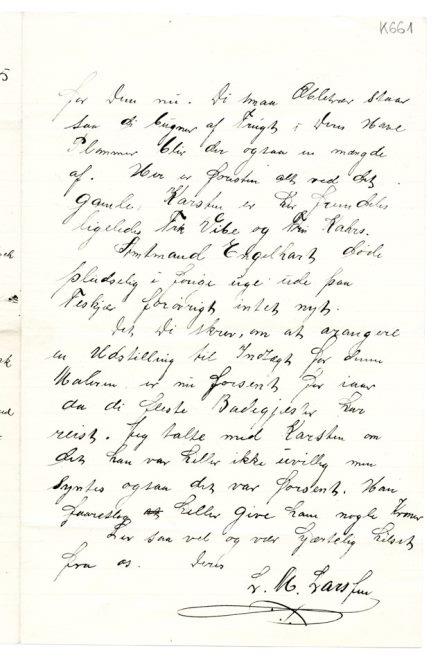 K661
for Dem nu. Di smaa Æbletrær staar
saa di bugner af Frugt i Deres Have
Plommer blir der ogsaa en mængde
af. Her er forresten alt ved det
gamle. Karsten er her fremdeles
ligeledes Frk Vibe og Frk Kahrs.
Amtmand Engelhart døde
pludselig i forige uge ude paa
forøvrigt intet nyt.
Det Di skrev, om at arangere
en Udstilling til Indtægt for denne
Maleren er nu forsent for iaar
da di fleste Badegjester har
reist. Jeg talte med Karsten om
det han var heller ikke uvillig men
syntes ogsaa det var forsent. Han
foreslog heller give ham nogle Kroner
Lev saa vel og vær hjertelig hilset
fra os. Deres
L. M. Larssen